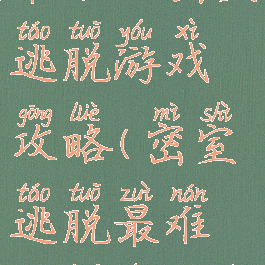 táo tuō yóu xì
逃脱游戏
gōng lüè mì shì
攻略(密室
táo tuō zuì nán
逃脱最难